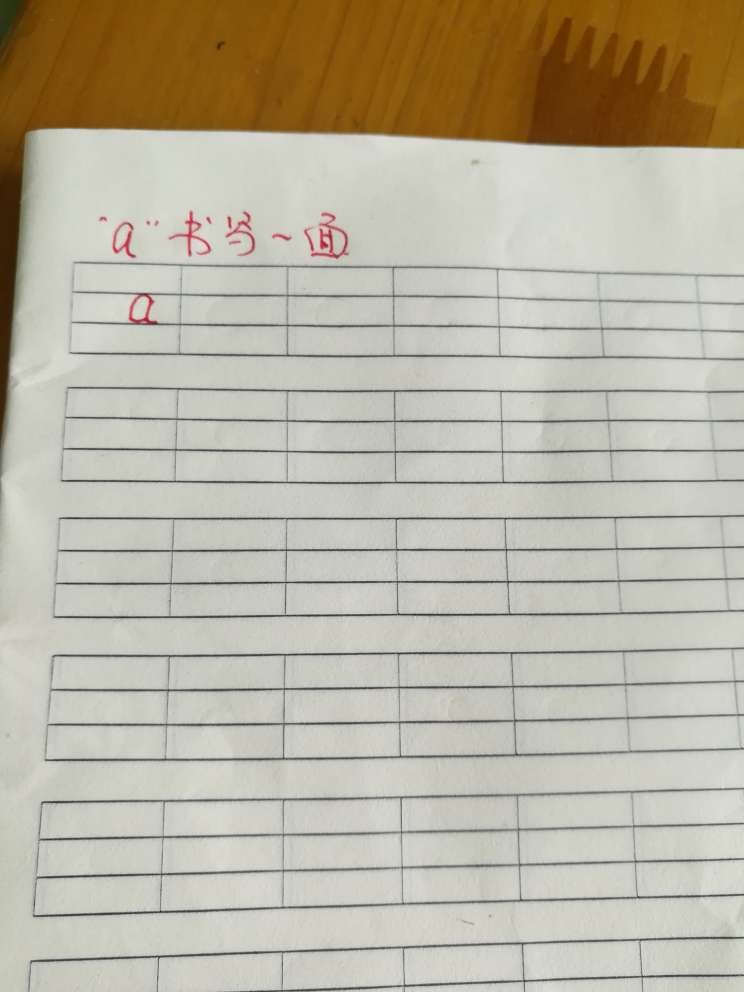 "a"书写一面
a